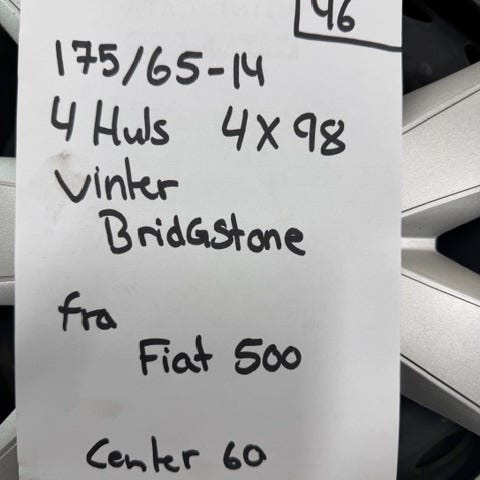 46
175/65-14
4 Huls 4X98
Vinter
BridGstone
fra
Fiat 500
Center 60